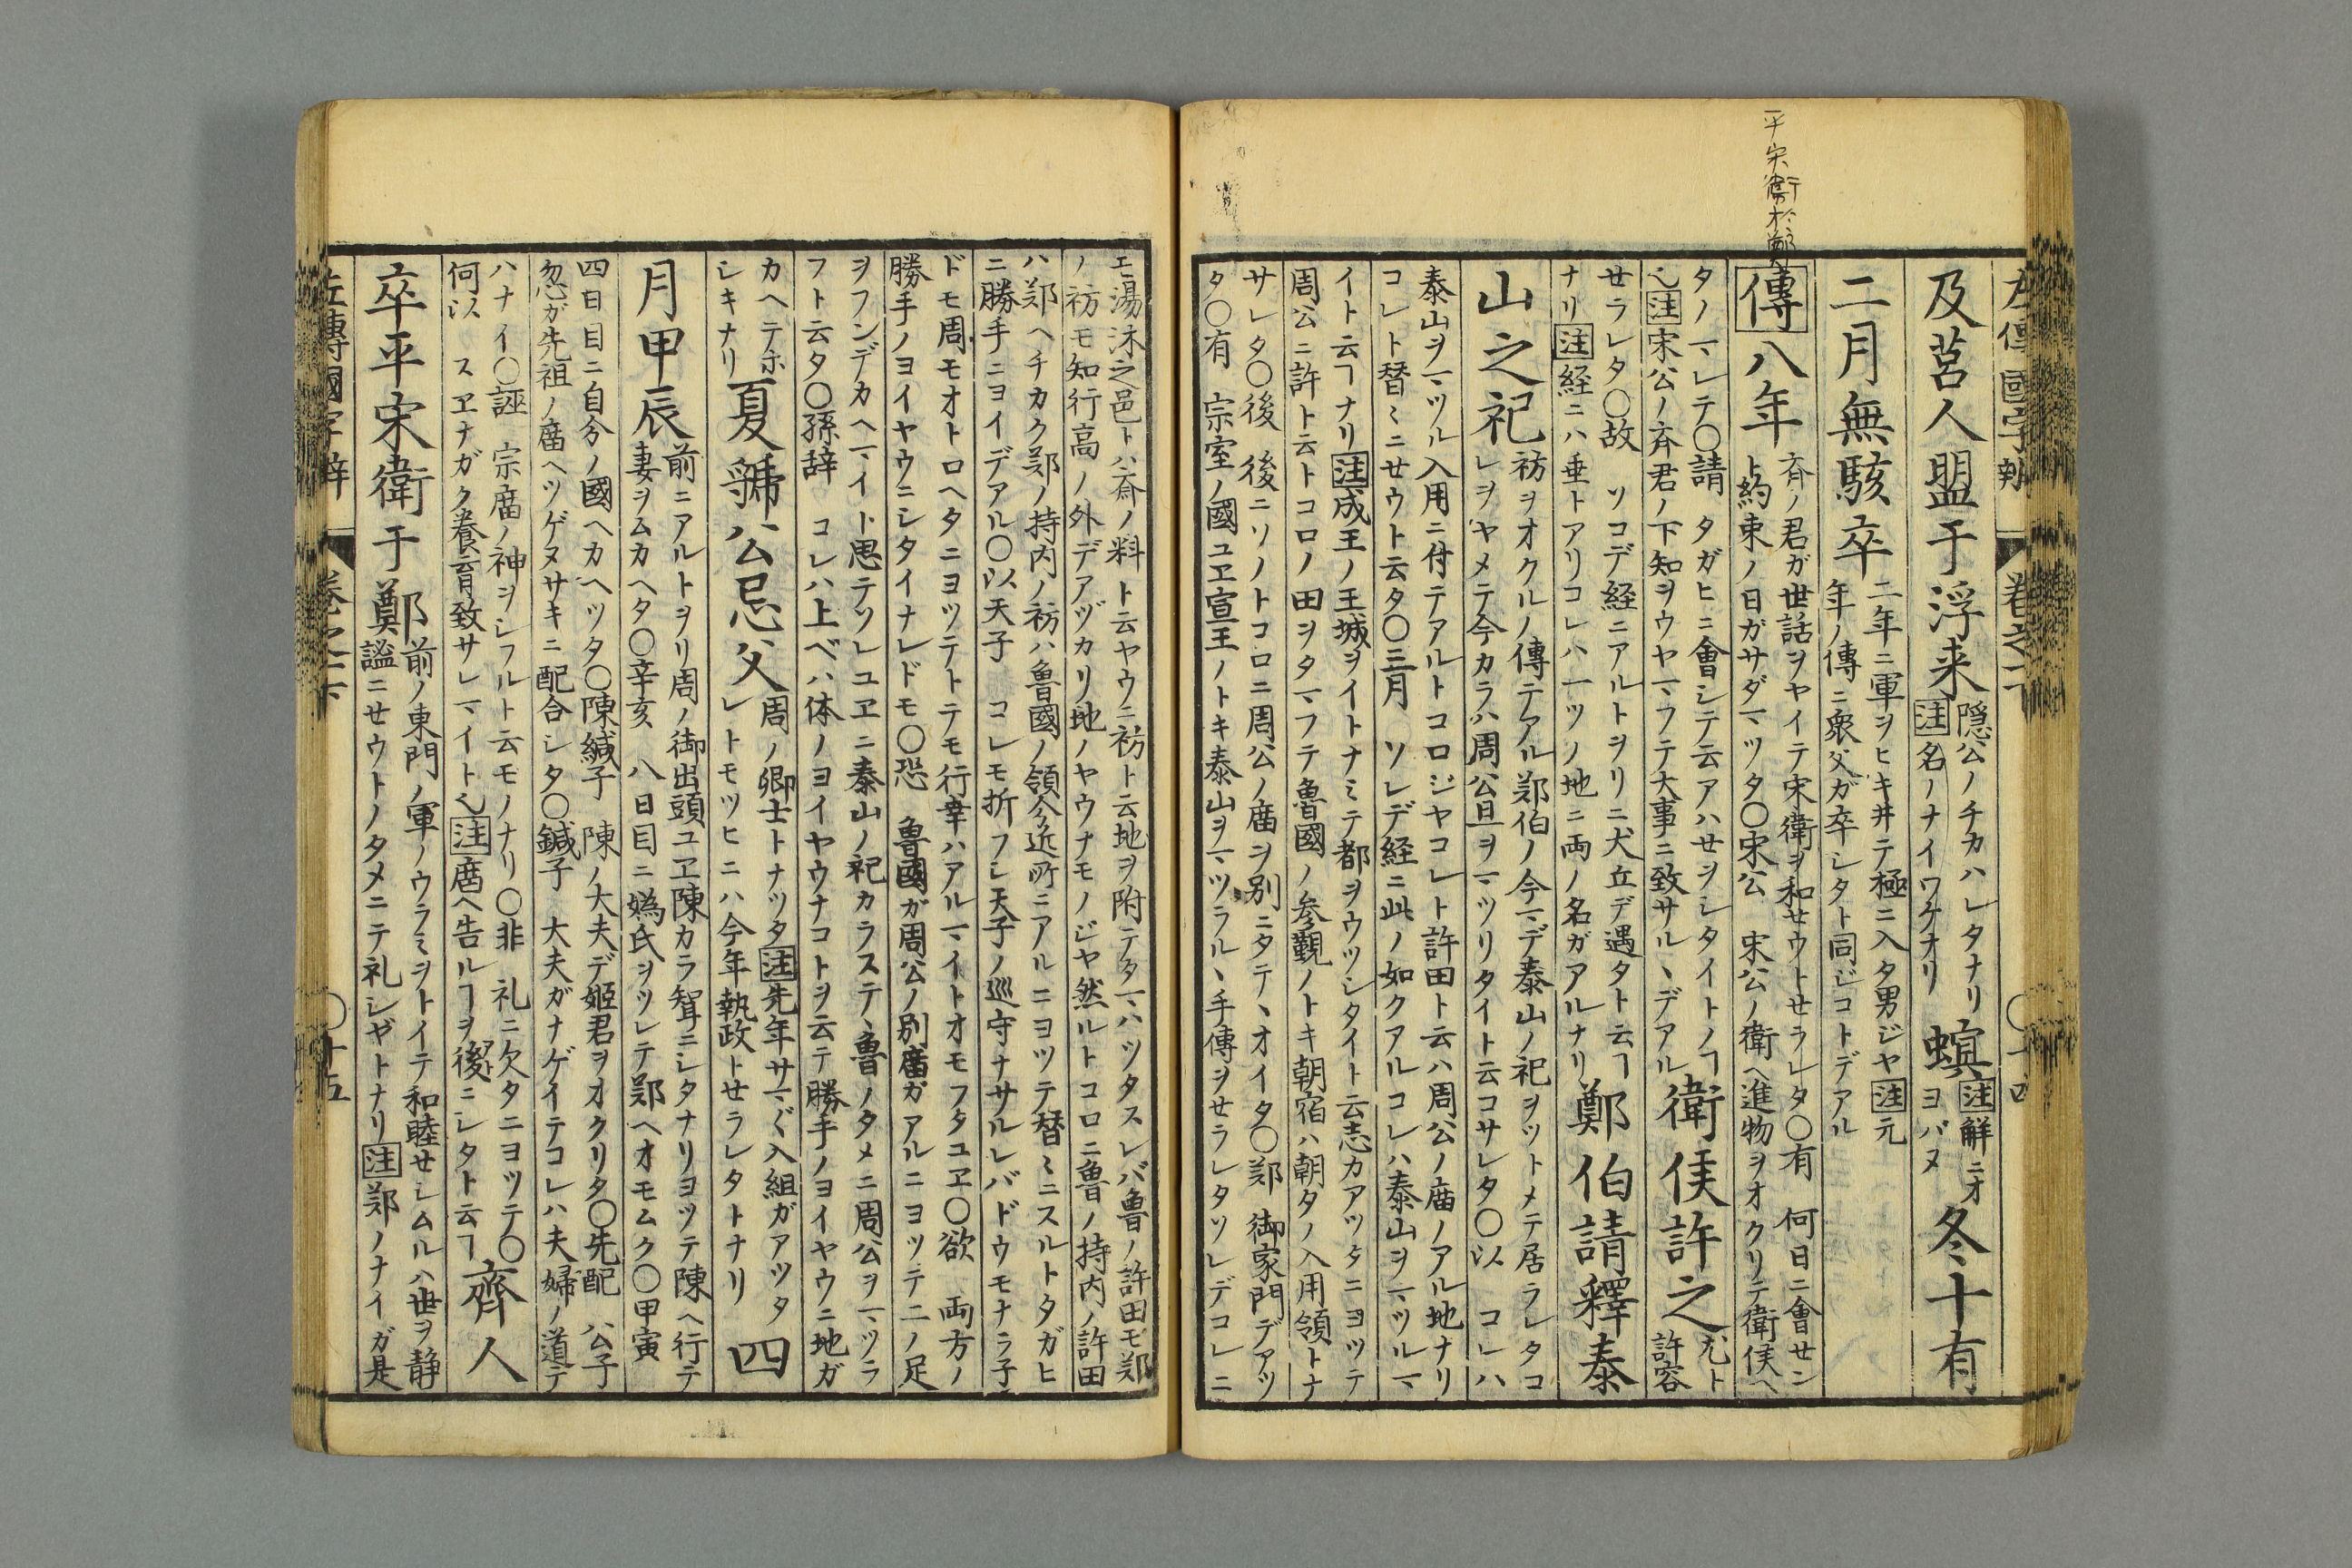 平宋衛於鄭
左傳國字辨 卷之下 〇十四
及莒人盟于浮来
隠公ノチカハレタナリ
注名ノナイワケナリ
螟
注觧ニオ
ヨバヌ
冬十有
二月無駭卒
二年ニ軍ヲヒキ井テ極ニ入タ男ジヤ注元
年ノ傳ニ衆父ガ卒シタト同ジコトデアル
傳八年
斉ノ君ガ世話ヲヤイテ宋衛ヲ和セウトセラレタ〇有 何日ニ會セン
ト約束ノ日ガサダマツタ〇宋公 宋公ノ衛ヘ進物ヲオクリテ衛侯ヘ
タノマレテ〇請 タガヒニ會シテ云アハセヲシタイトノヿ
也注宋公ノ斉君ノ下知ヲウヤマフテ大事ニ致サルヽデアル
衛侯許之
尤ト
許容
せラレタ〇故 ソコデ経ニアルトヲリニ犬丘デ遇タト云ヿ
ナリ注経ニハ垂トアリコレハ一ツノ地ニ両ノ名ガアルナリ
鄭伯請釋泰
山之祀
祊ヲオクルノ傳テアル郑伯ノ今マデ泰山ノ祀ヲツトメテ居ラレタコ
レヲヤメテ今カラハ周公旦ヲマツリタイト云コサレタ〇以 コレハ
泰山ヲマツル入用ニ付テアルトコロジヤコレト許田ト云ハ周公ノ廟ノアル地ナリ
コレト替ミニせウト云タ〇三月 ソレデ経ニ此ノ如クアルコレハ泰山ヲマツルマ
イト云ヿナリ注成王ノ王城ヲイトナミテ都ヲウツシタイト云志カアツタニヨツテ
周公ニ許ト云トコロノ田ヲタマフテ魯國ノ参覲ノトキ朝宿ハ朝タノ入用領トナ
サレタ〇後 後ニソノトコロニ周公ノ廟ヲ別ニタテヽオイタ〇郑 御家門デアツ
タ〇有 宗室ノ國ユヱ宣王ノトキ泰山ヲマツラルヽ手傳ヲせラレタソレデコレニ
エ湯沐之邑トハ斎ノ料ト云ヤウニ祊ト云地ヲ附テタマハツタスレバ魯ノ許田モ郑
ノ祊モ知行高ノ外デアヅカリ地ノヤウナモノジヤ然ルトコロニ魯ノ持内ノ許田
ハ郑ヘチカク郑ノ持内ノ祊ハ魯國ノ領分近所ニアルニヨツテ替ミニスルトタガヒ
ニ勝手ニヨイデアル〇以天子 コレモ折フシ天子ノ巡守ナサルレバドウモナラ子
ドモ周モオトロヘタニヨツテトテモ行幸ハアルマイトオモフタユヱ〇欲 両方ノ
勝手ノヨイヤウニシタイナレドモ〇恐 魯國ガ周公ノ別廟ガアルニヨツテ二ノ足
ヲフンデカヘマイト思テソレユヱニ泰山ノ祀カラステヽ魯ノタメニ周公ヲマツラ
フト云タ〇孫辞 コレハ上ベハ体ノヨイヤウナコトヲ云テ勝手ノヨイヤウニ地ガ
カヘテホ
シキナリ
夏虢公忌父
周ノ卿士トナツタ注先年サマ〴〵入組ガアツタ
レトモツヒニハ今年執政トせラレタトナリ
四
月甲辰
前ニアルトヲリ周ノ御出頭ユヱ陳カラ聟ニシタナリヨツテ陳ヘ行テ
妻ヲムカヘタ〇辛亥 八日目ニ媯氏ヲツレテ郑ヘオモムク〇甲寅
四日目ニ自分ノ國ヘカヘツタ〇陳鍼子 陳ノ大夫デ姫君ヲオクリタ〇先配 公子
忽ガ先祖ノ廟ヘツゲヌサキニ配合シタ〇鍼子 大夫ガナゲイテコレハ夫婦ノ道テ
ハナイ〇誣 宗廟ノ神ヲシフルト云モノナリ〇非 礼ニ欠タニヨツテ〇
何以 スヱナガク養育致サレマイト也注廟ヘ告ルヿヲ後ニシタト云ヿ
齊人
卒平宋衛于鄭
前ノ東門ノ軍ノウラミヲトイテ和睦せシムルハ世ヲ静
謐ニせウトノタメニテ礼シヤトナリ注郑ノナイガ是
左傳國字辨 卷之下 〇十五